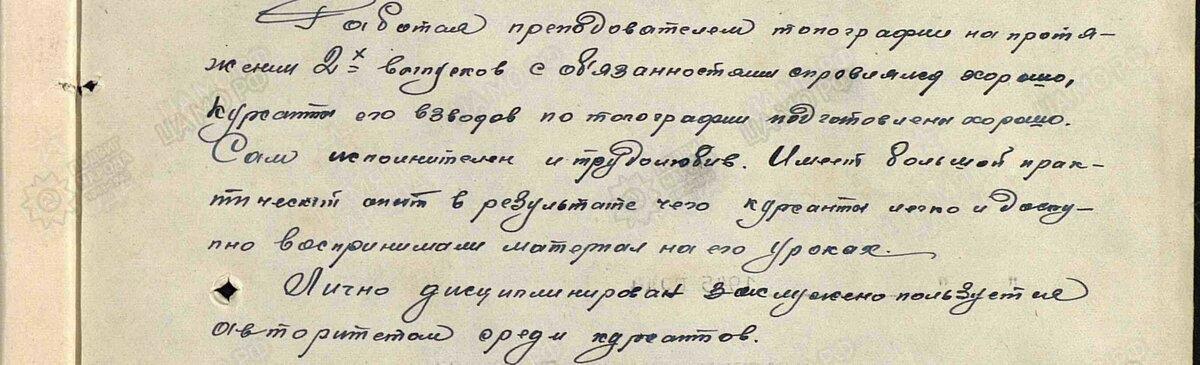 Работая преподователем топографии на протя-
жении 2х выпусков с обязанностями справлялся хорошо,
курсанты его взводов по топографии подготовлены хорошо.
Сам исполнителен и трудолюбив. Имеет большой прак-
тический опыт в результате чего курсанты легко и досту-
пно воспринимали материал на его уроках.
Лично дисциплинирован заслужено пользуется
авторитетом среди курсантов.